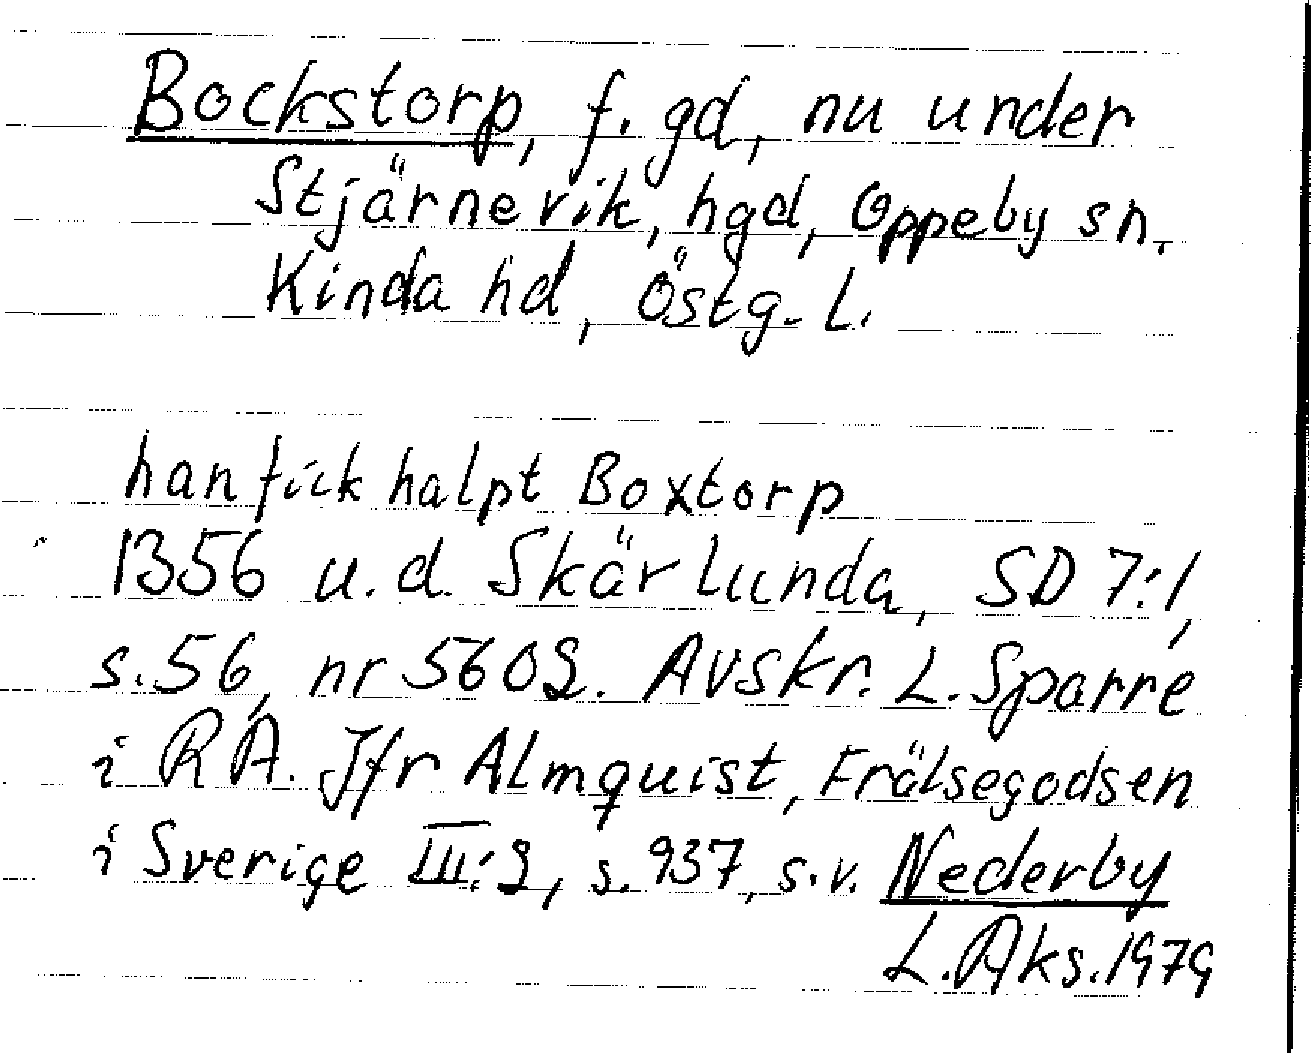 Bockstorp, f. gd, nu under
Stjärnevik, hgd, Oppeby sn.
Kinda hd, Östg. L.
han fick halpt Boxtorp
1356 u.d. Skärlunda, SD 7:1,
s. 56, nr 5602. Avskr. L. Sparre
i RA. Jfr Almquist, Frälsegodsen
i Sverige III:2, s. 937, s.v. Nederby
L. Aks. 1979